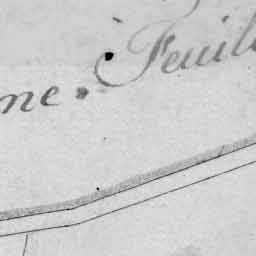 me. Feuil